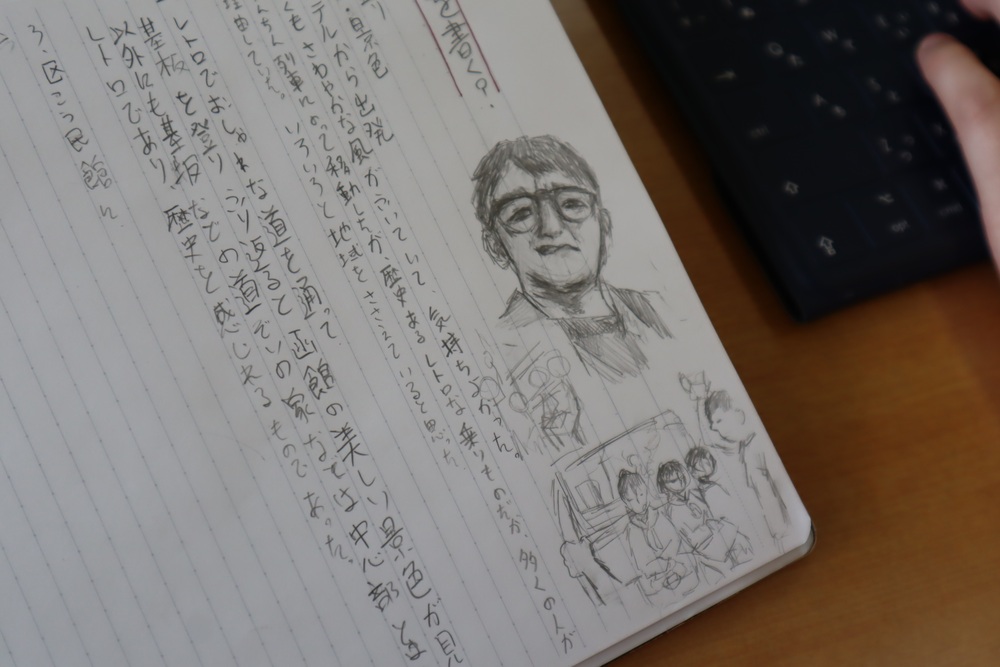 を書く?.
り・景色
テルから出発
くもさわやかな風がふいていて、気持ちよかった。
んちん列車にのって移動したが、歴史あるレトロな乗りものだが、多くの人が
いろいろと地域をささえていると思った
レトロでおしゃれな道を通って、
基板を登りふり返ると函館の美しい景色が見
以外にも基坂などの道ぞいの家などは中心部とは
レトロであり、歴史を感じれるものであった。
3.区こう民館